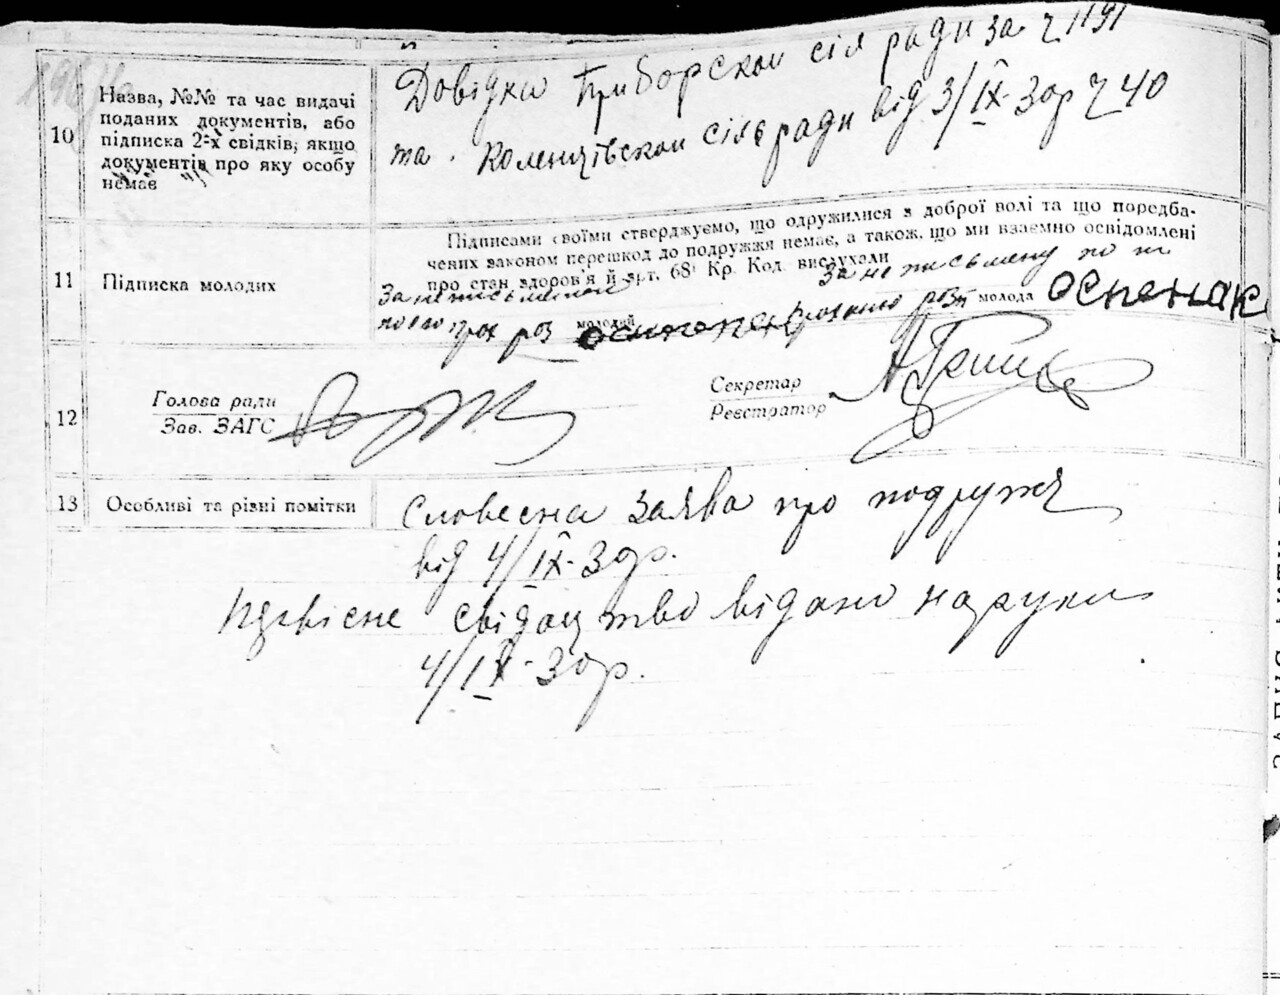 Довідки Приборскои сіл ради за ч 1191
10
Назва, №№ та час видачі
поданих документів, або
підписка 2-х свідків, якщо
документів про яку особу
немає
та Коленцівскои сільради від 3/IX-30р ч 40
11
Підписка молодих
Підписами своїми стверджуємо, що одружилися з доброї волі та що передба-
чених законом перешкод до подружжя немає, а також, що ми взаємно освідомлені
про стан здоров'я й арт. 68 Кр. Код. вислухали
За неписьменного
За неписьмену по її
його прох роз молодий
проханню розп молода осьпенак
12
Голова ради
Зав. ЗАГС
Секретар
Реєстратор
13
Особливі та різні помітки
Словесна заява про подружжя
від 4/IX-30р.
свідоцтво відано на руки
4/IX-30р.